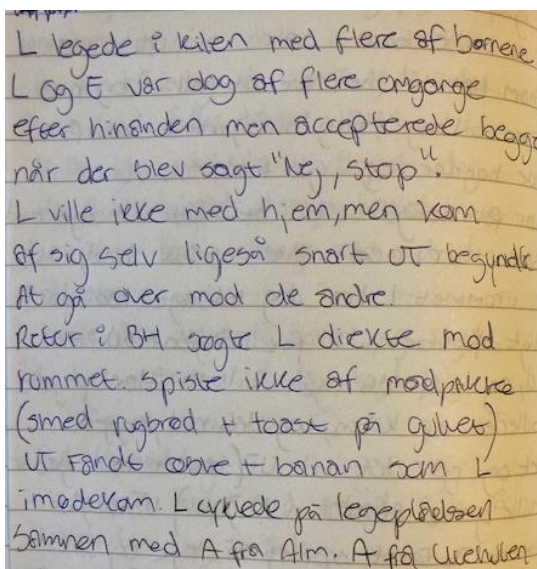 L legede i kilen med flere af børnene
L og E var dog af flere omgange
efter hinanden men accepterede begge
når der blev sagt "Nej, stop".
L ville ikke med hjem, men kom
af sig selv ligeså snart UT begyndte
At gå over mod de andre.
Retur i BH søgte L diekte mod
rummet. Spiste ikke af madpakke
(smed rugbrød + toast på gulvet)
UT fandt + banan som L
imødekom. L cyklede på legepladsen
sammen med A fra Alm. A fra